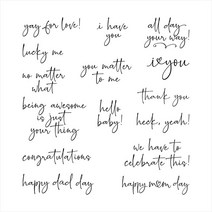 yay for love!
lucky me
no matter
what
being awesome
is just
your thing
congratulations
happy dad day
i have
you
you matter
to me
hello
baby!
all day
your way!
i ♥ you
thank you
heck, yeah!
we have to
celebrate this!
happy mom day